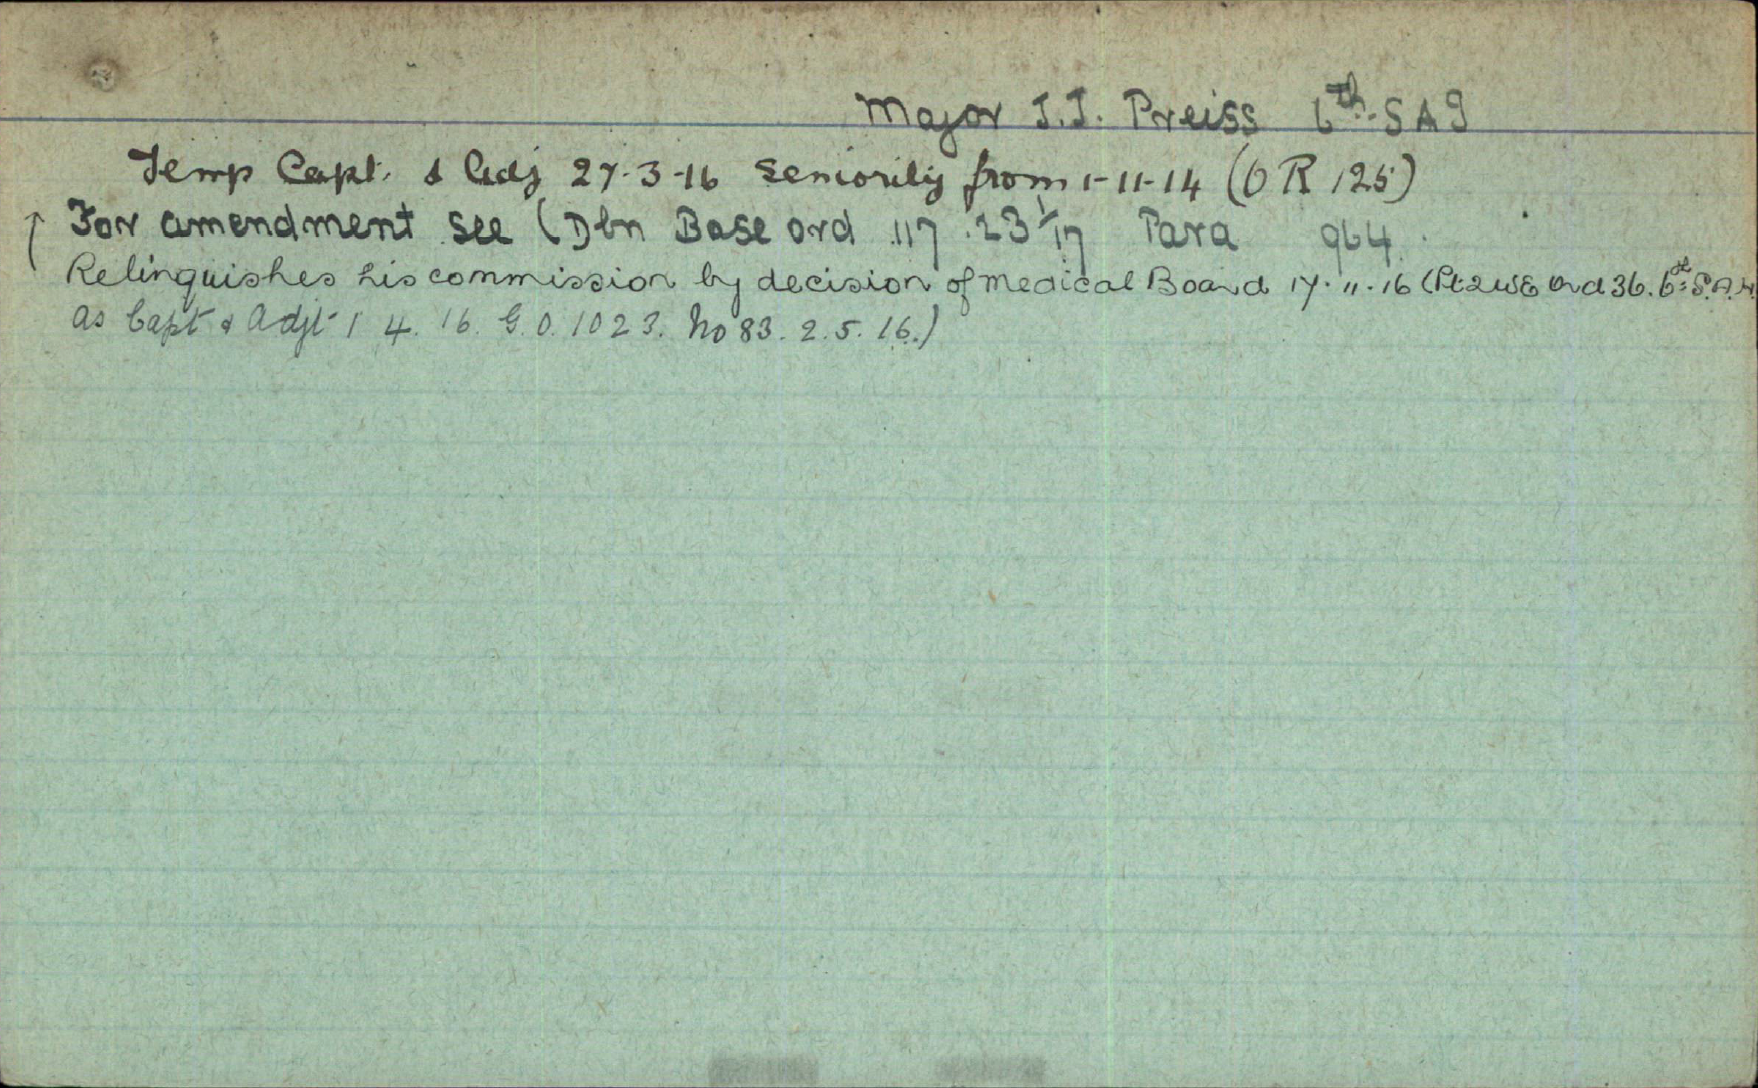 Major J.J. Preiss 6th S A I
Temp Capt. & Adj 27-3-16 seniority from 1-11-14 (O R 125)
For amendment see (Dbn Base ord 117 . 23/1/17 Para 964
Relinquishes his commission by decision of medical Board 17.11.16 (Pt 2 WE Ord 36. 6th S.A.
as Capt & Adjt 1 4. 16. G.O. 1023. No 83. 2. 5. 16.)